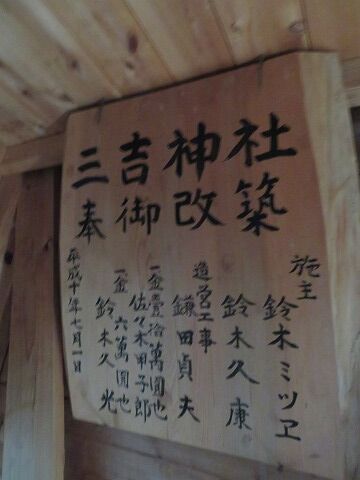 三吉神社
奉御改築
施主
鈴木ミツヱ
鈴木久康
造営工事
鎌田貞夫
一金壹拾萬圓也
佐々木甲子郎
一金六萬圓也
鈴木久光
平成十年七月一日